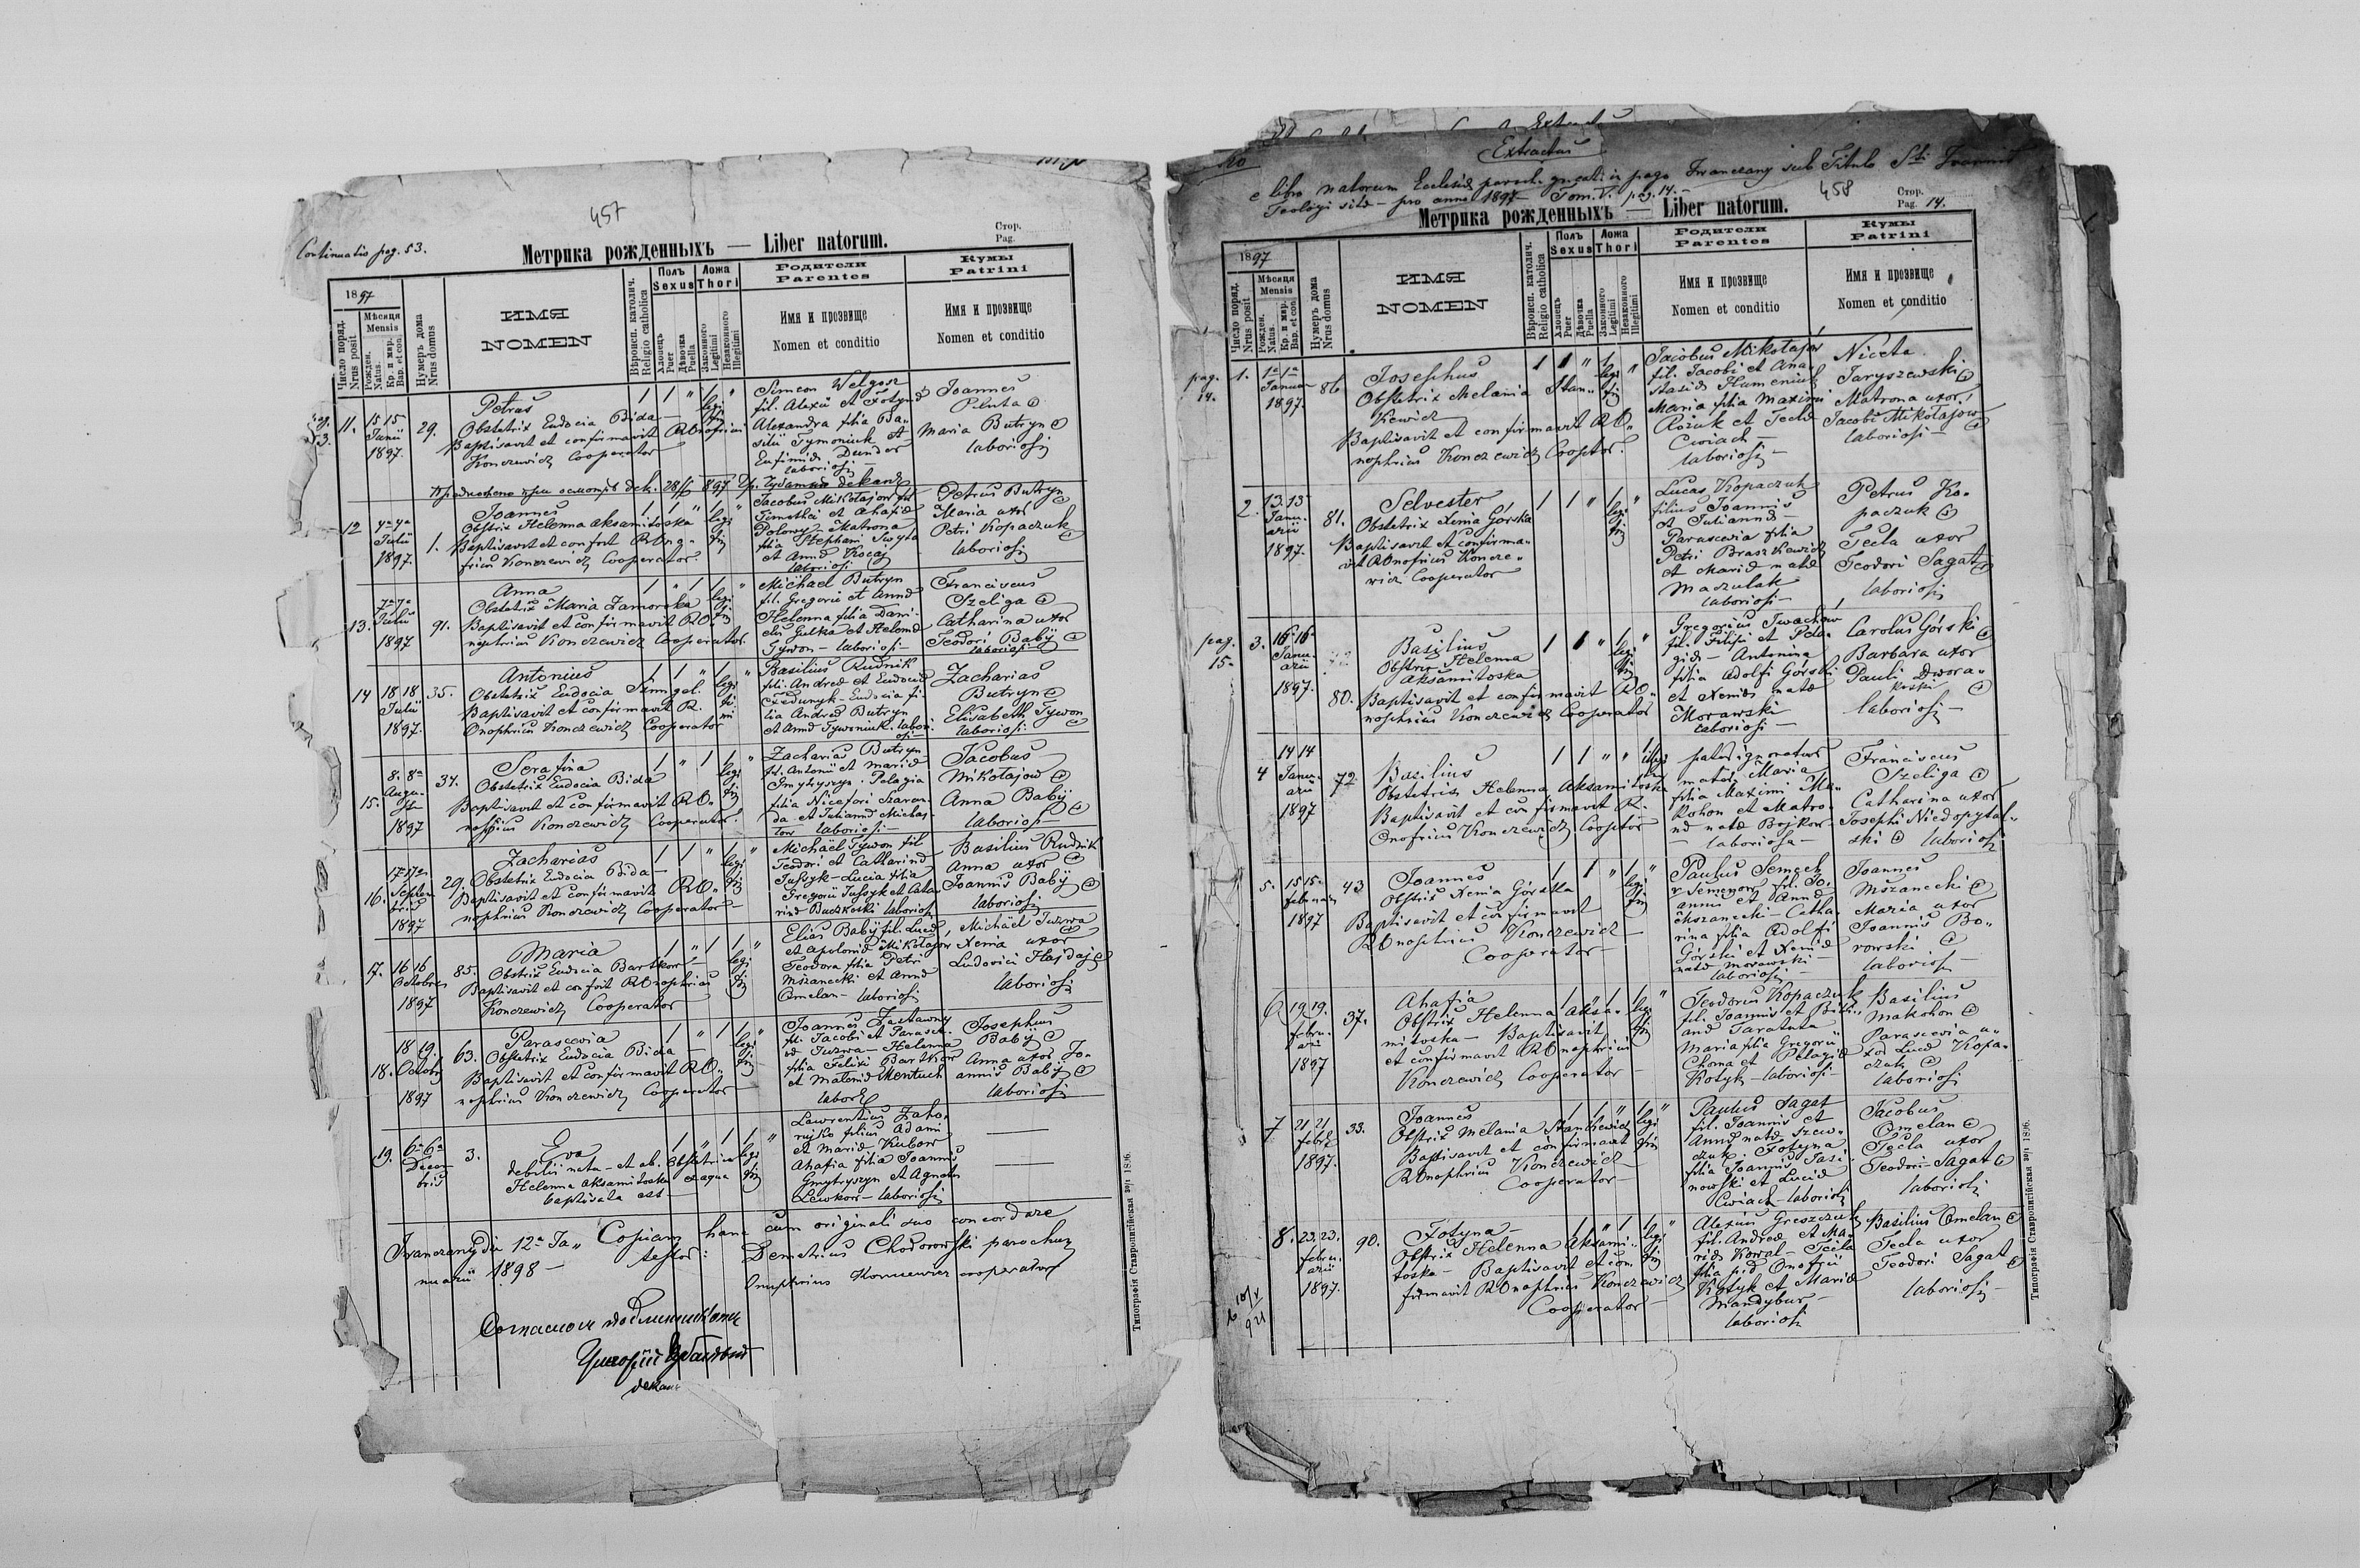 457
Continuatio pag. 53.
Метрика рожденныхъ — Liber natorum.
Стор.
Pag.
1897
Число поряд.
Nrus posit
Мѣсяця
Mensis
Рожден.
Natus.
Кр. и мир.
Bap. et con.
Нумеръ дома
Nrus domus
ИМЯ
NOMEN
Вѣроисп. католич.
Religio catholica
Полъ
Sexus
Хлопець
Puer
Дѣвочка
Puella
Ложа
Thori
Законного
Legitimi
Незаконного
Illegitimi
Родители
Parentes
Имя и прозвище
Nomen et conditio
Кумы
Patrini
Имя и прозвище
Nomen et conditio
11. 15 15 Junii 1897. 29.
Petrus
Obstetrix Eudocia Bida
Baptisavit et confirmavit ROnofrius
Konczewicz Cooperator
1 1 " 1 legi "
Simeon Welgosz
fil. Alexii et Fotynæ
Alexandra filia Ba-
silii Tymoniuk et
Eufimiæ Dundar
laboriosi
Joannes
Pluta
Maria Butryn
laboriosi
12 Julii 1897. 1.
Joannes
Obstrix Helenna Aksamitoska
Konczewicz Cooperator.
Jacobus Mikołajow fil
Timothei et Ahafiæ
Polowy - Matrona
filia Stephani Swyta
et Annæ Kocaj
laboriosi
Petrus Butryn
Maria uxor
Petri Kopaczuk
laboriosi
13. 7a 7a Julii 1897 91.
Anna
Obstetrix Maria Zamorska
Baptisavit et confirmavit RO
nophrius Konczewicz Cooperator.
Michael Butryn
fil. Gregorii et Annæ
Helenna filia Dani-
elis Gulka et Helenæ
Tywon - laboriosi
Franciscus
Szeliga
Catharina uxor
Teodori Babÿ
laboriosi
14 18 18 Julii 1897. 35.
Antonius
Baptisavit et confirmavit R.
Onophrius Konczewicz Cooperator
Basilius Rudnik
fil. Andreæ et Eudociæ
Fedunyk - Eudocia fi-
lia Andreæ Butryn
et Annæ Tywoniuk. labori-
osi
Zacharias
Butryn
Elisabeth Tywon
laboriosi
15. 8. 8a Augu- sti 1897 34.
Serafina
Obstetrix Eudocia Bida
Baptisavit et confirmavit RO-
nophrius Konczewicz Cooperator.
Zacharias Butryn
fil. Antonii et Mariæ
Dmytryszyn. Pelagia
filia Nicefori Szaran-
da et Juliannæ Michaj-
low laboriosi
Jacobus
Mikołajow
Anna Babÿ
laboriosi
16. 17 17a Septem- bris 1897 29.
Zacharias
Obstetrix Eudocia Bida
Baptisavit et confirmavit RO-
nophrius Konczewicz Cooperator
Michaël Tywon fil
Teodori et Catharinæ
Juszyk - Lucia filia
Gregorii Juszyk et Catha-
rinæ Buczkoski laboriosi
Basilius Rudnik
Anna uxor
Joannis Babÿ
laboriosi
17. 16 16 Octobris 1897 85.
Maria
Obstrix Eudocia Bartkow
Baptisavit et confvit ROnophrius
Konczewicz Cooperator
Elias Babÿ fil. Lucæ
et Apoloniæ Mikołajow
Teodora filia Petri
Mszanecki et Annæ
Omelan - laboriosi
Michaël Juzwa
Xenia uxor
Ludovici Hajdaj
laboriosi
18. 18 19. Octobr 1897 63.
Parascevia
Obstetrix Eudocia Bida
Baptisavit et confirmavit RO-
nophrius Konczewicz Cooperator
Joannes Zastawny
fil. Jacobi et Parasce-
væ Juzwa - Helenna
filia Felixi Bartkow
et Matronæ Mentuch
labor
Josephus
Babÿ
Anna uxor Jo-
annis Babÿ
laboriosi
19. 6a 6a Decem- bris 3.
Eva
debilis nata - et ab Obstetrice
Helenna Aksamitoska ex aqua
baptisata est
Lawrentius Zaho-
rujko filius Adami
et Mariæ Kubow
Ahafia filia Joannis
Dmytryszyn et Agnetis
Lewkow - laboriosi
Iwanczany die 12a Ja- Copiam hanc cum originali suo concordare
nuarii 1898 - testor: Demetrius Chodorowski parochus
Onuphrius Konczewicz cooperator
декан
Типографія Ставропигійская 1896.
Extractus
e libro natorum Ecclesiæ paroch. gr. cath. in pago Iwanczany sub Titulo Sti Joannis
Teologi sitæ - pro anno 1897 - Tom. V. pag. 14. -
458
Метрика рожденныхъ — Liber natorum.
Стор.
Pag. 14.
1897
Число поряд.
Nrus posit
Мѣсяця
Mensis
Рожден.
Natus.
Кр. и мир.
Bap. et con.
Нумеръ дома
Nrus domus
ИМЯ
NOMEN
Вѣроисп. католич.
Religio catholica
Полъ
Sexus
Хлопець
Puer
Дѣвочка
Puella
Ложа
Thori
Законного
Legitimi
Незаконного
Illegitimi
Родители
Parentes
Имя и прозвище
Nomen et conditio
Кумы
Patrini
Имя и прозвище
Nomen et conditio
pag. 14.
1. 1a 1a Januar 1897. 86
Josephus
Obstetrix Melania Stan-
kewicz
Baptisavit et confirmavit RO-
nophrius Konczewicz Cooptor.
Jacobus Mikołajow
fil. Jacobi et Ana-
stasiæ Humeniuk
Maria filia Maximi
Rożuk et Teclæ
Cwiach -
laboriosi -
Niceta
Jaryszewski
Matrona uxor
Jacobi Mikołajow
laboriosi -
2. 13. 13 Janu- arii 1897. 81.
Selvester
Obstetrix Xenia Górska
Baptisavit et confirma-
vit ROnofrius Koncze-
wicz Cooperator
Lucas Kopaczuk
filius Joannis
et Juliannæ -
Parascevia filia
Petri Braszkewicz
et Mariæ natæ
Maczulak
laboriosi -
Petrus Ko-
paczuk
Tecla uxor
Teodori Sagat
laboriosi
pag. 15.
3. 16 16 Janu- arii 1897. 80.
Basilius
Obstrix Helenna
Aksamitoska
Baptisavit et confirmavit RO-
nophrius Konczewicz Cooperator
Gregorius Iwachow
fil. Filipi et Pela-
giæ - Antonina
filia Adolfi Górski
et Xeniæ natæ
Morawski
laboriosi -
Carolus Górski
Barbara uxor
Pauli Dwora-
koski
laboriosi -
4 14 14 Janu- arii 1897 72.
Basilius
Obstetrix Helenna Aksamitoska
Baptisavit et confirmavit R.
Onofrius Konczewicz Cooptor
pater ignoratus
mater Maria
filia Maximi Ma-
kohon et Matro-
næ natæ Bojkow
laboriosa -
Franciscus
Szeliga
Catharina uxor
Josephi Niedopytal-
ski laboriosi
5. 15 15. februarii 1897 43
Joannes
Obstrix Xenia Górska
Baptisavit et confirmavit
ROnophrius Konczewicz
Cooperator
Paulus Semech
v Semenow fil. Jo-
annis et Annæ
Mszanecki - Catha-
rina filia Adolfi
Górski et Xeniæ
natæ Morawski
laboriosi -
Joannes
Mszanecki
Maria uxor
Joannis Bo-
rowski
laboriosi
6 19 19. febru- arii 1897 37.
Ahafia
Obstrix Helenna Aksa-
mitoska - Baptisavit
et confirmavit ROnophrius
Konczewicz Cooperator
Teodorus Kopaczuk
Maria filia Gregorii
Choma et Pelagiæ
Kotyk - laboriosi
Basilius
Makohon
Parascevia u-
xor Lucæ Kopa-
czuk
laboriosi
7 21 21 febr. 1897. 33.
Joannes
Obstrix Melania Stankewicz
Baptisavit et confirmavit
ROnophrius Konczewicz
Cooperator
Paulus Sagat
fil. Joannis et
Annæ natæ Szew-
czuk. Fotyna
filia Joannis Jasi-
nowski et Luciæ
Cwiach - laboriosi
Jacobus
Omelan
Tecla uxor
Teodori Sagat
laboriosi
8. 23. 23. febru- arii 1897. 90.
Fotyna -
Obstrix Helenna Aksami-
toska - Baptisavit et con-
firmavit ROnophrius Konczewicz
Cooperator -
Alexius Greszczuk
fil. Andreæ et Ma-
riæ Kowal - Tecla
filia Onofrii
Kotyk et Mariæ
Mandybur -
laboriosi
Basilius Omelan
Tecla uxor
Teodori Sagat
laboriosi -
Типографія Ставропигійская 1896.